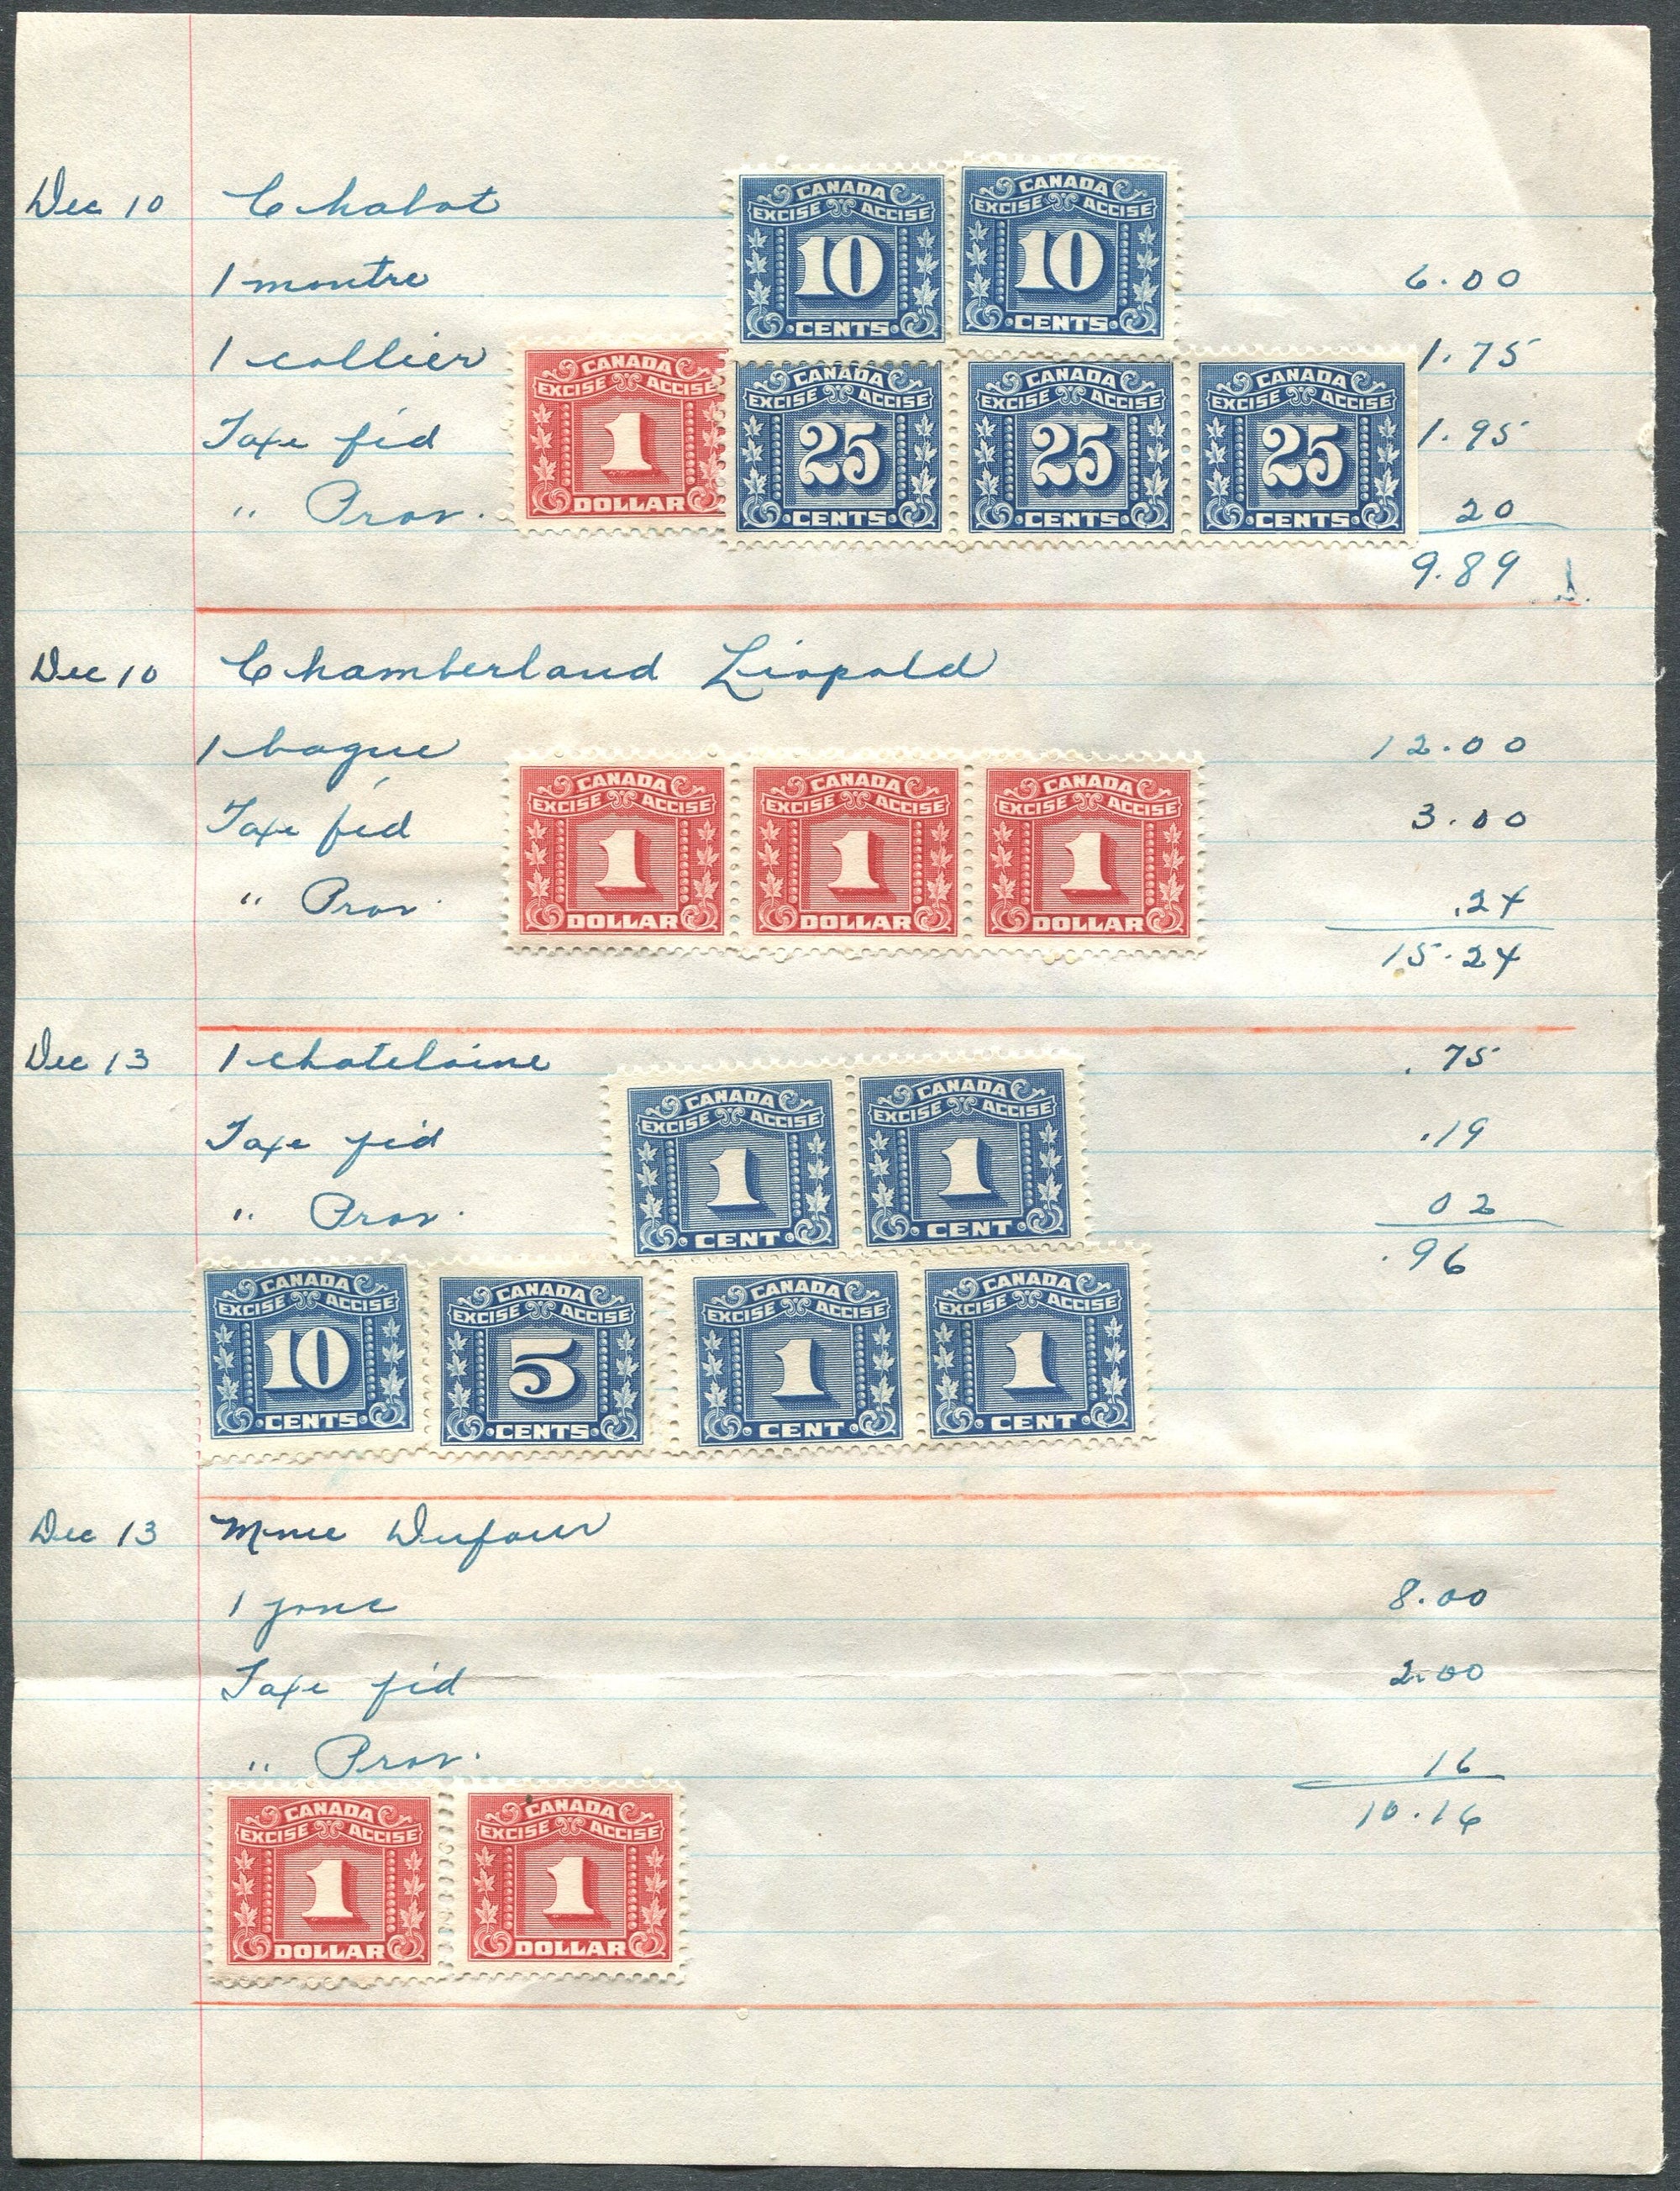 Dec 10 Chabot
CANADA EXCISE ACCISE 10 CENTS
CANADA EXCISE ACCISE 10 CENTS
1 montre 6.00
1 collier 1.75
CANADA EXCISE ACCISE 1 DOLLAR
CANADA EXCISE ACCISE 25 CENTS
CANADA EXCISE ACCISE 25 CENTS
CANADA EXCISE ACCISE 25 CENTS
Taxe féd 1.95
" Prov. 20
9.89
Dec 10 Chamberland Léopold
1 bague 12.00
CANADA EXCISE ACCISE 1 DOLLAR
CANADA EXCISE ACCISE 1 DOLLAR
CANADA EXCISE ACCISE 1 DOLLAR
Taxe féd 3.00
" Prov. .24
15.24
Dec 13 1 chatelaine .75
CANADA EXCISE ACCISE 1 CENT
CANADA EXCISE ACCISE 1 CENT
Taxe féd .19
" Prov. 02
.96
CANADA EXCISE ACCISE 10 CENTS
CANADA EXCISE ACCISE 5 CENTS
CANADA EXCISE ACCISE 1 CENT
CANADA EXCISE ACCISE 1 CENT
Dec 13 Mme Dufour
1 jonc 8.00
Taxe féd 2.00
" Prov. 16
10.16
CANADA EXCISE ACCISE 1 DOLLAR
CANADA EXCISE ACCISE 1 DOLLAR